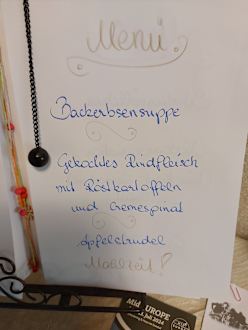 Menü
Backerbsensuppe
Gekochtes Rindfleisch
mit Röstkartoffeln
und Cremespinat
Apfelstrudel
Mahlzeit!
EUROPE